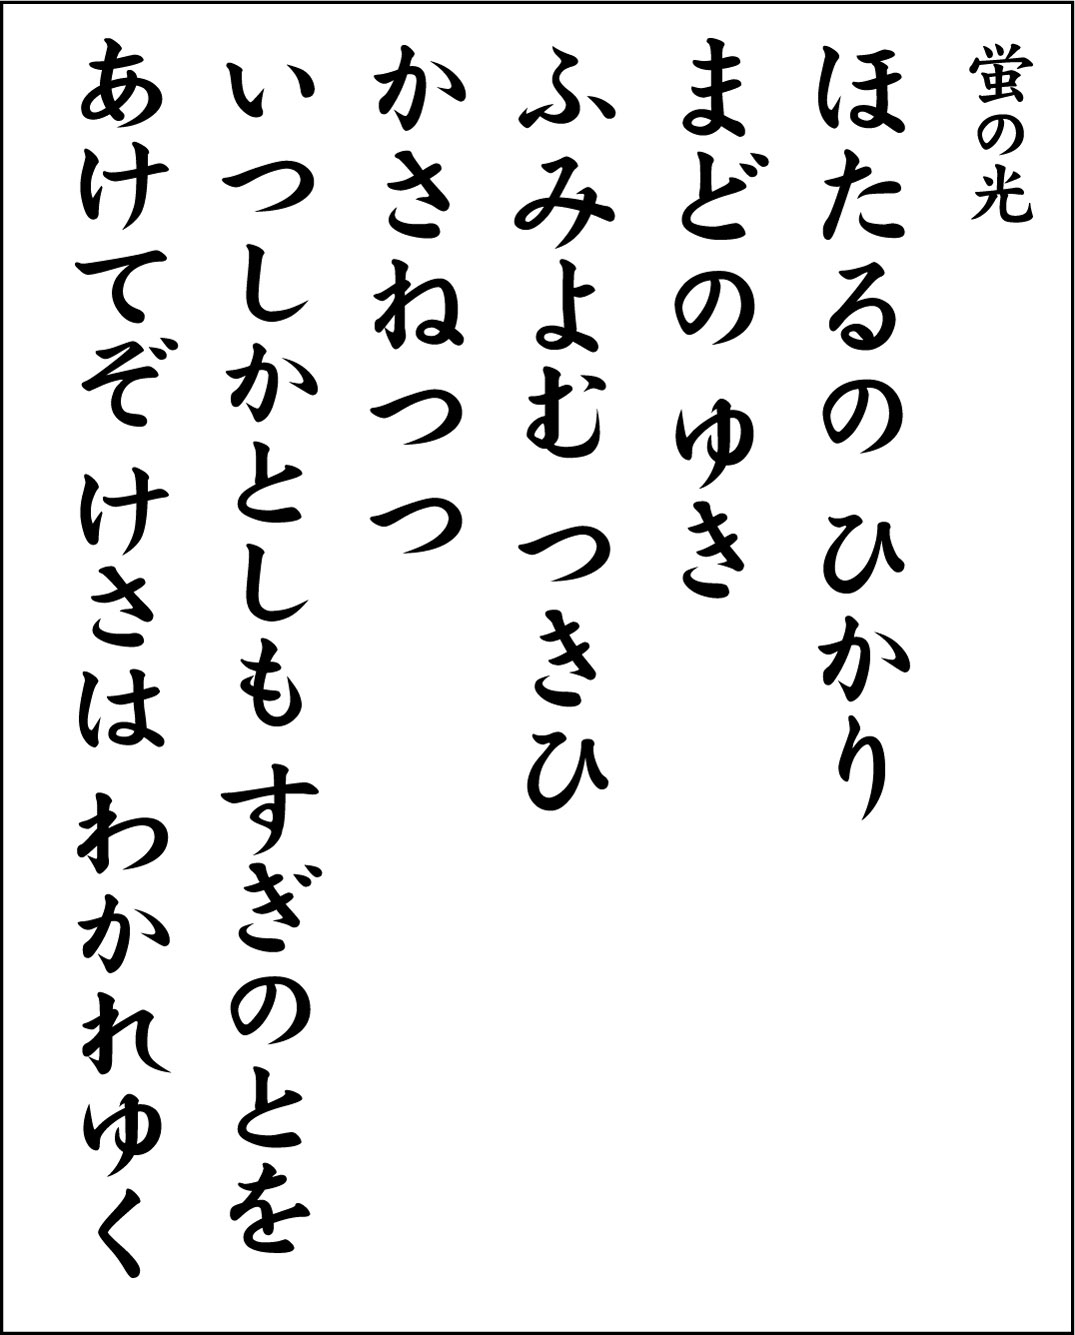 蛍の光
ほたるの ひかり
まどの ゆき
ふみよむ つきひ
かさねつつ
いつしかとしも すぎのとを
あけてぞ けさは わかれゆく